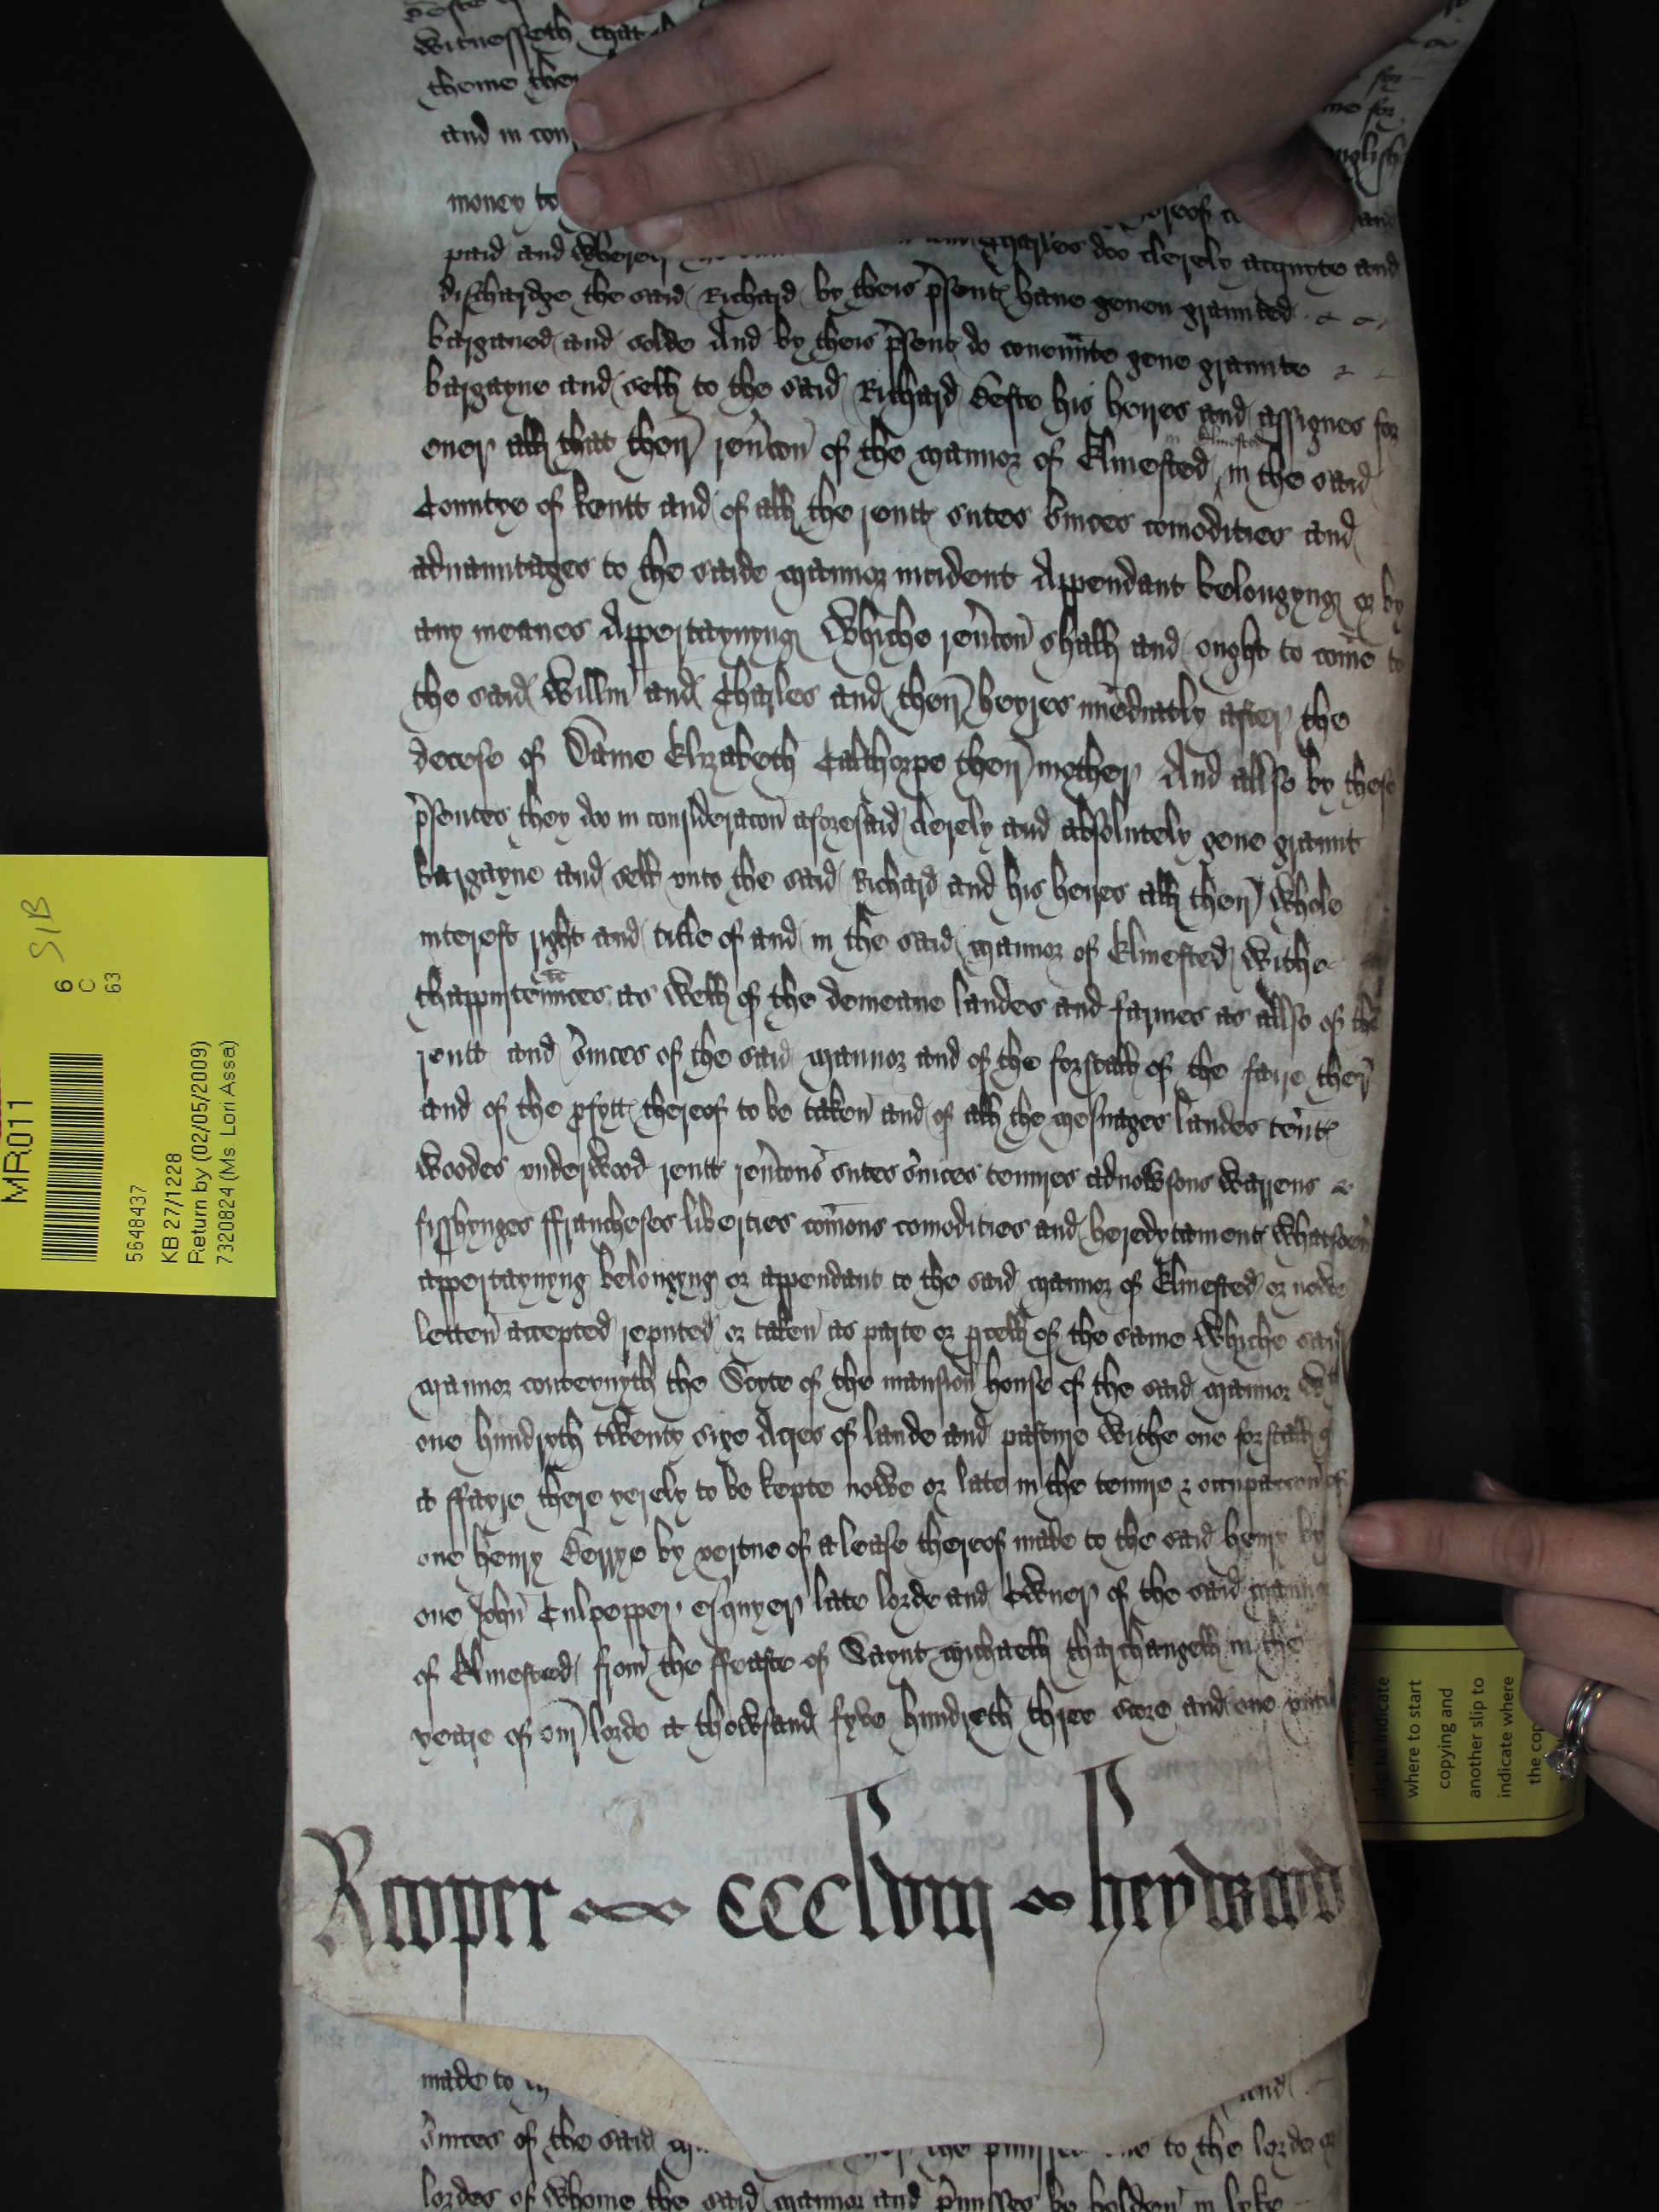 witnesseth that
theme
and in con
money to
paid and wherof Charles doo clerely acquyte and
dischardge the said Richard by theis p'sent haue geuen graunted
barganed and solde And by theis p'sent do couen'nte geue graunte
bargayne and sell to the said Richard Beste his heires and assignes for
euer all that their reu'con of the mannor of Elmested in Elmested in the said
Countye of kentt and of all the rentt sutes s'uices comodities and
aduauntages to the saide mannor incident Appendant belongyng or by
any meanes Appertaynyng Whiche reu'con shall and ought to come to
the said Willm and Charles and their heyres imediatly after the
decese of Dame Elizabeth Calthorpe their mother And allso by these
p'sentes they do in consideracon aforesaid clerely and absolutely geue graunt
bargayne and sell vnto the said Richard and his heires all their whole
interest right and title of and in the said mannor of Elmested withe
thappurten'nces as well of the demeane landes and farmes as allso of the
rentt and s'uices of the said mannor and of the forstall of the faire ther
and of the p'fytt thereof to be taken and of all the mesuages landes ten't
woodes vnderwood rentt reu'cons sutes s'uices tenures aduowsons warrens
fisshynges ffrancheses liberties com'ons comodities and heredytament whatsoeu'
appertaynyng belongyng or appendant to the said mannor of Elmested or nowe
letten accepted reputed or taken as parte or p'cell of the same whiche said
mannor conteynyth the Scyte of the mansion house of the said mannor wt
one hundryth twenty sixe Acres of lande and pasture withe one forstall of
a ffayre there yerely to be kepte nowe or late in the tenure & occupacon of
one henry Berrye by vertue of a lease thereof made to the said henry by
one John Culpepper esquyer late lorde and Owner of the said mannor
of Elmested from the ffeaste of Saynt Michaell tharchangell in the
yeare of our lorde a thowsand fyve hundreth three score and one vntil
Rooper ccclviij heydwod
made to and
s'uices of the said the p'misses to the lorde or
lordes of whome the said mannor and p'misses be holden in lyke
MR011
6
C
63
SIB
5648437
KB 27/1228
Return by (02/05/2009)
7320824 (Ms Lori Assa)
slip to indicate
where to start
copying and
another slip to
indicate where
the cop